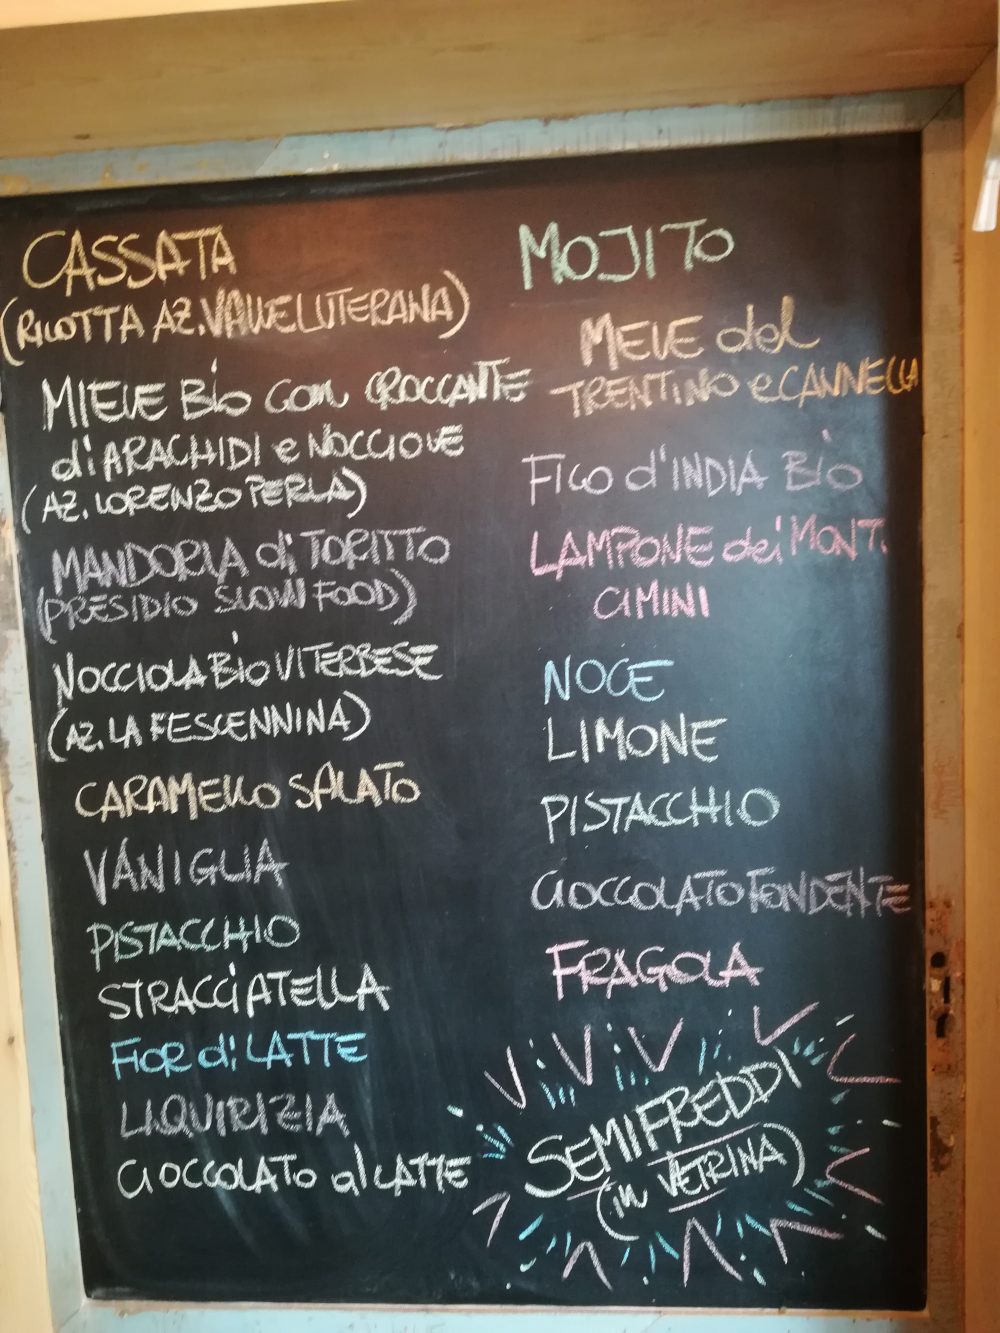 CASSATA
(RICOTTA AZ. VALLELUTERANA)
MIELE Bio con CROCCANTE
di ARACHIDI e NOCCIOLE
(AZ. LORENZO PERLA)
MANDORLA di TORITTO
(PRESIDIO SLOW FOOD)
NOCCIOLA Bio VITERBESE
(AZ. LA FESCENNINA)
CARAMELLO SALATO
VANIGLIA
PISTACCHIO
STRACCiATELLA
FIOR di LATTE
LIQUIRIZIA
CIOCCOLATO al LATTE
MOJITO
MELE del
TRENTINO e CANNELLA
FICO d'INDIA Bio
LAMPONE dei MONTI
CIMINI
NOCE
LIMONE
PISTACCHIO
CIOCCOLATO FONDENTE
FRAGOLA
SEMIFREDDI
(in VETRINA)